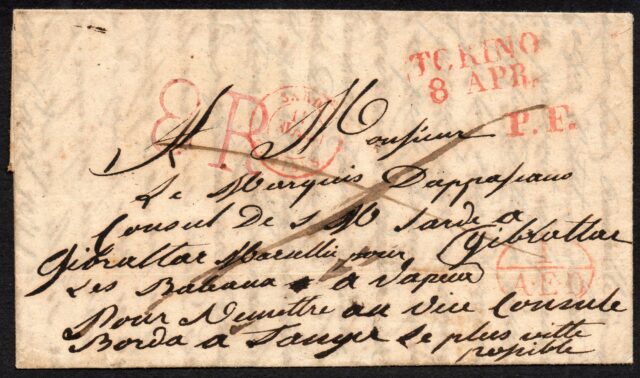 TORINO
8 APR.
P.P.
8 R
A Monsieur
Le Marquis D'appasiano
Consul De s M Sarde a
Gibraltar Marseille pour Gibraltar
Les Bateaux a Vapeur
A.E.D
Pour Remettre au Vice Consule
Borda a Tanger Le plus vitte
possible